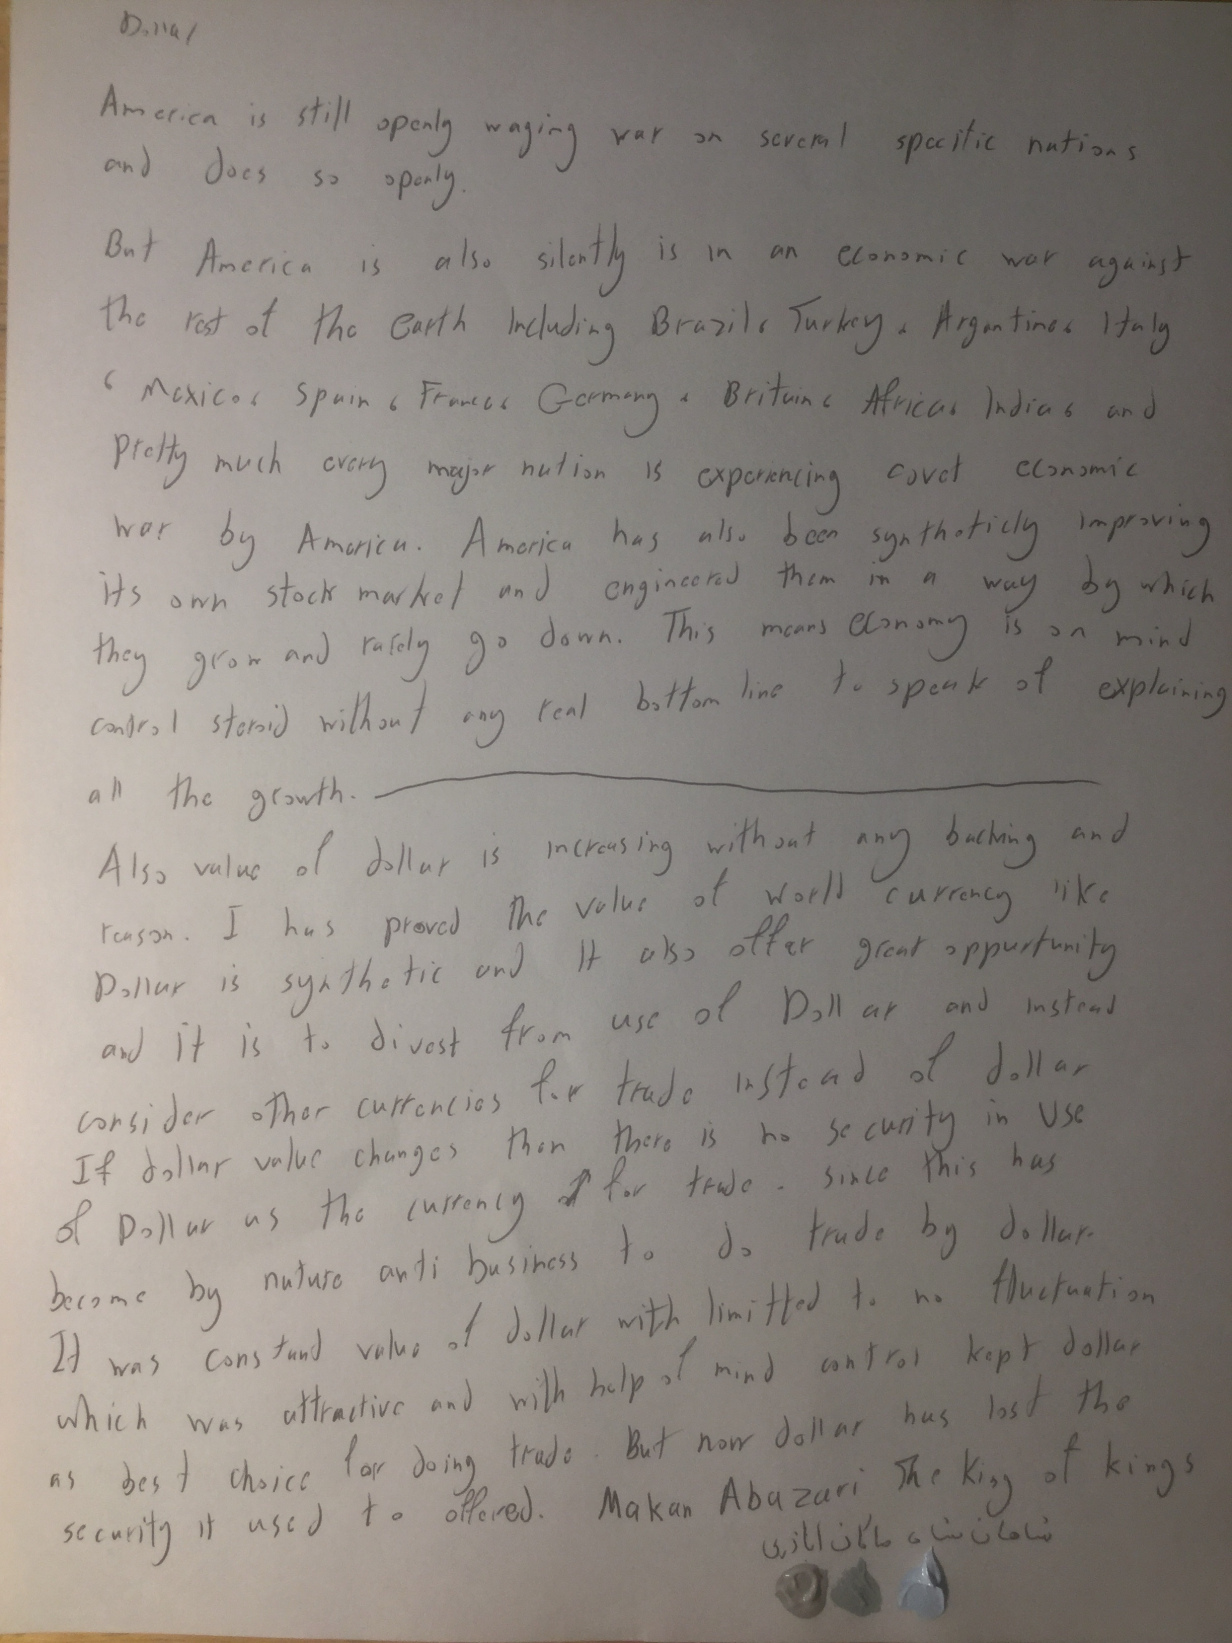 Dollar
America is still openly waging war on several specific nations
and does so openly.
But America is also silently is in an economic war against
the rest of the earth Including Brazil، Turkey، Argantina، Italy
، Mexico، Spain، France، Germany، Britain، Africa، India، and
pretty much every major nation is experiencing covet economic
war by America. America has also been syntheticly improving
its own stock market and engineered them in a way by which
they grow and rarely go down. This means economy is on mind
control steroid without any real bottom line to speak of explaining
all the growth.
Also value of dollar is increasing without any backing and
reason. I has proved the value of world currency like
Dollar is synthetic and It also offer great oppurtunity
and it is to divest from use of Dollar and instead
consider other currencies for trade instead of dollar
If dollar value changes then there is no security in use
of Dollar as the currency for trade. since this has
become by nature anti business to do trade by dollar.
It was constand value of dollar with limitted to no fluctuation
which was attractive and with help of mind control kept dollar
as best choice for doing trade. But now dollar has lost the
security it used to offered. Makan Abazari The King of kings
شاهان شاه ماکان اباذری